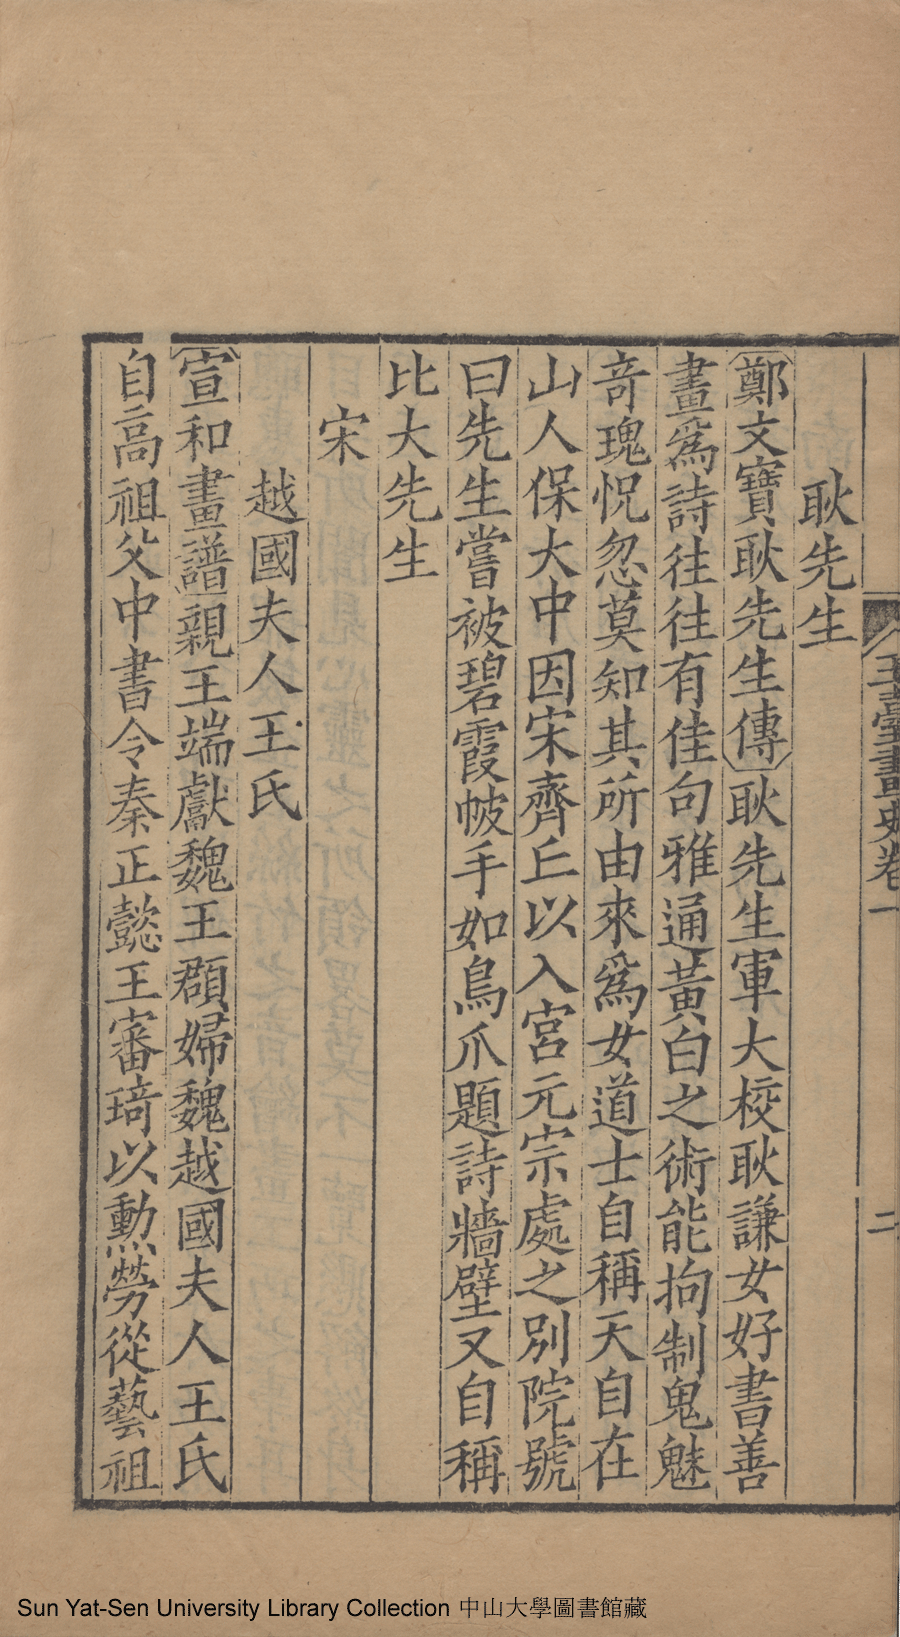 玉臺畫史卷一
二
耿先生
鄭文寶耿先生傳耿先生軍大校耿謙女好書善
畫爲詩往往有佳句雅通黃白之術能拘制鬼魅
奇瑰怳忽莫知其所由來爲女道士自稱天自在
山人保大中因宋齊丘以入宮元宗處之別院號
曰先生嘗被碧霞帔手如鳥爪題詩牆壁又自稱
比大先生
宋
越國夫人王氏
宣和畫譜親王端獻魏王頵婦魏越國夫人王氏
自高祖父中書令秦正懿王審琦以勲勞從藝祖
Sun Yat-Sen University Library Collection 中山大學圖書館藏